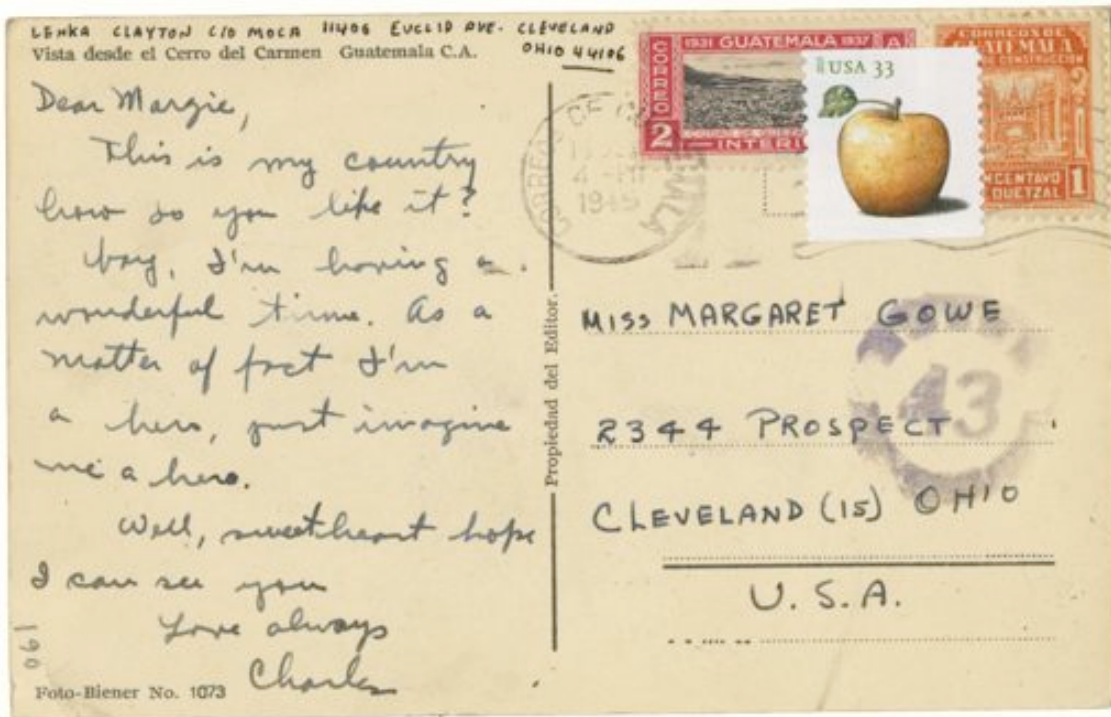 LENKA CLAYTON C/O MOCA 11406 EUCLID AVE. CLEVELAND
OHIO 44106
Vista desde el Cerro del Carmen Guatemala C.A.
Dear Margie,
This is my country
how do you like it?
boy, I'm having a
wonderful time. As a
matter of fact I'm
a hero, just imagine
me a hero.
Well, sweetheart hope
I can see you
Love always
Charles
190
Foto-Biener No. 1073
Propiedad del Editor.
1931 GUATEMALA 1937
CORREO
2
INTERI
USA 33
CORREOS DE
GUATEMALA
CONSTRUCCION
UN CENTAVO
QUETZAL
1
MISS MARGARET GOWE
43
2344 PROSPECT
CLEVELAND (15) OHIO
U.S.A.